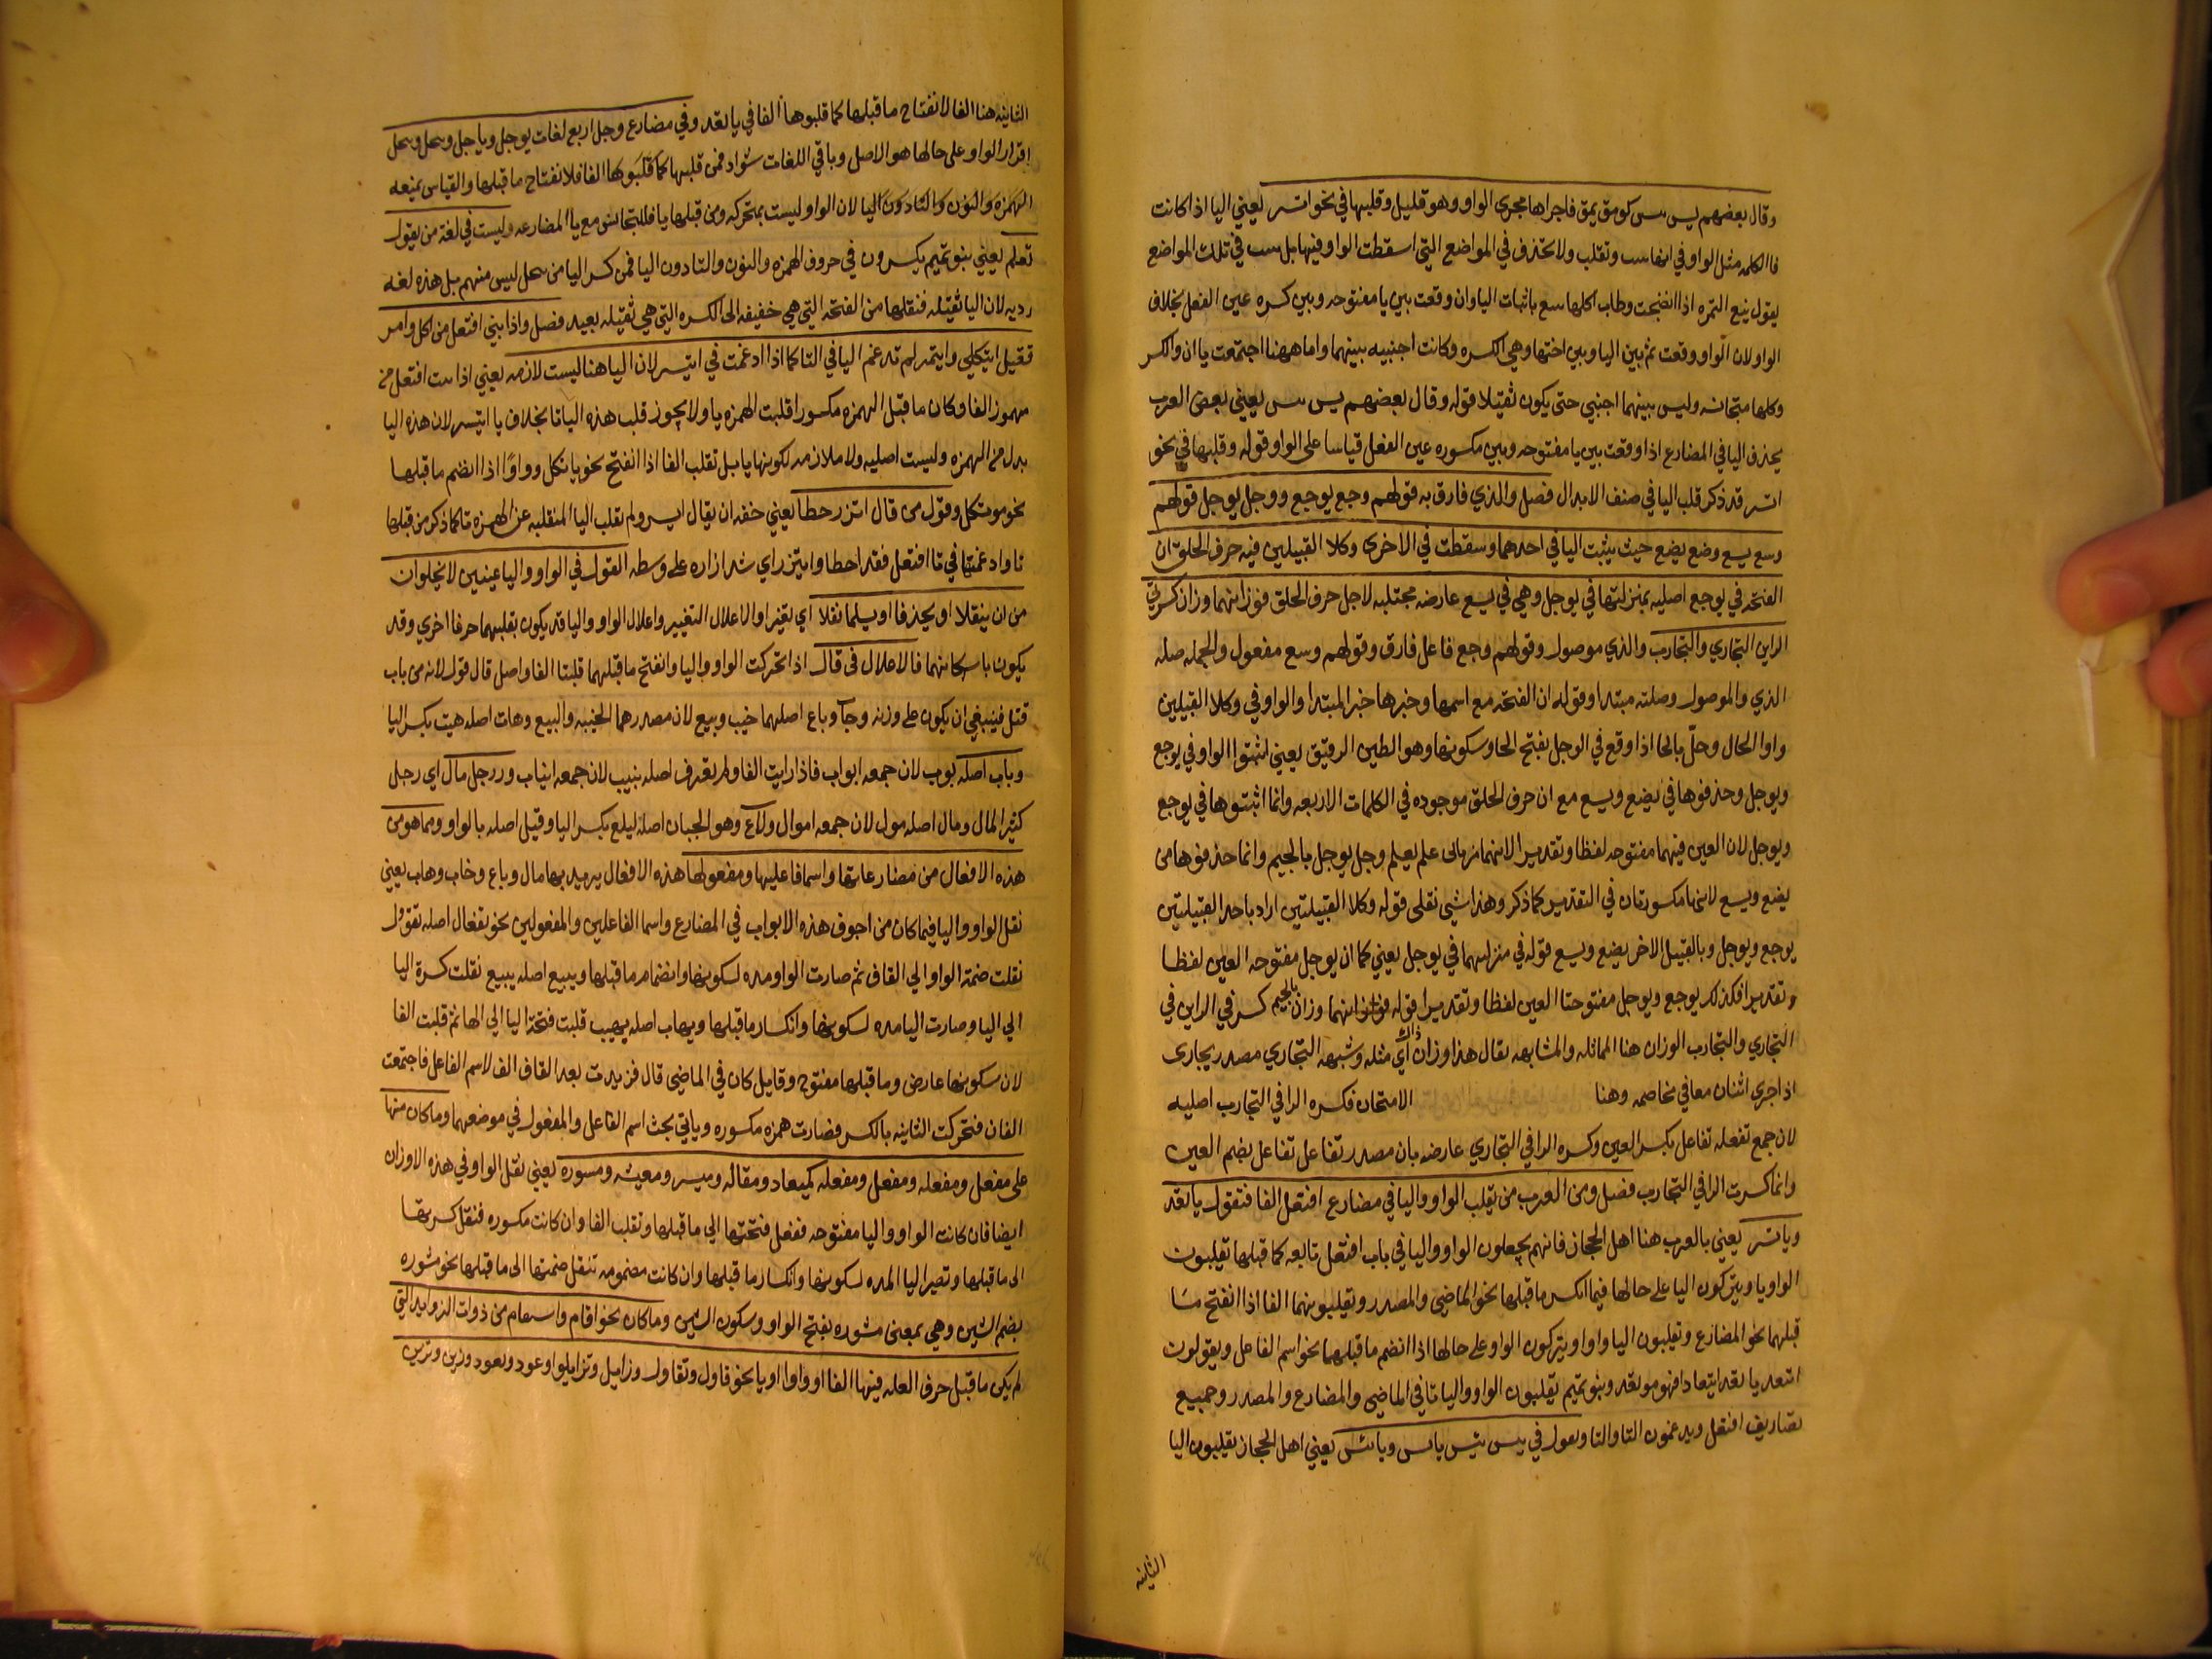 وقال بعضهم يس كومق يمق فاجراها مجرى الواو وهو قليل وقلبها في نحو اتسر يعني اليا اذا كانت
فا الكلمه مثل الواو في انها وتقلب ولا تحذف في المواضع التي اسقطت الواو فيها بل في تلك المواضع
يقول ينع التمره اذا انضجت وطاب اكلها باثبات اليا وان وقعت بين يا مفتوحه وبين كسره عين الفعل بخلاف
الواو لان الواو وقعت ثم بين اليا وبين اختها وهي الكسره وكانت اجنبيه بينهما واما ههنا اجتمعت ياان والكسر
وكلها متجانسه وليس بينهما اجنبي حتى يكون ثقيلا قوله وقال بعضهم يس يعني بعض العرب
يحذف اليا في المضارع اذا وقعت بين يا مفتوحه وبين مكسوره عين الفعل قياسا على الواو قوله وقلبها في نحو
اتسر قد ذكر قلب اليا في صنف الابدال فصل والذي فارق به قولهم وجع يوجع ووجل يوجل قولهم
وسع يسع وضع يضع حيث يثبت اليا في احدهما وسقطت في الاخرى وكلا القبيلين فيه حرف الحلق ان
الفتحه في يوجع اصليه بمنزلتها في يوجل وهي في يسع عارضه مجتلبه لاجل حرف الحلق فوزانهما وزان كسرتي
الراين التجاري والتجارب والذي موصول وقولهم وجع فاعل فارق وقولهم وسع مفعول والجمله صله
الذي والموصول وصلته مبتدا وقوله ان الفتحه مع اسمها وخبرها خبر المبتدا والواو في وكلا القبيلين
واو الحال وحل بالحا اذا وقع في الوحل بفتح الحا وسكونها وهو الطين الرقيق يعني اثبتوا الواو في يوجع
ويوجل وحذفوها في يضع ويسع مع ان حرف الحلق موجوده في الكلمات الاربعه وانما اثبتوها في يوجع
ويوجل لان العين فيهما مفتوحه لفظا وتقديرا لانهما من باب علم يعلم وجل يوجل بالجيم وانما حذفوها من
يضع ويسع لانها مكسورتان في التقدير كما ذكر وهذا شي نقلى قوله وكلا القبيلتين اراد باحد القبيلتين
يوجع ويوجل وبالقبيل الاخر يضع ويسع قوله في منزلتهما في يوجل يعني كما ان يوجل مفتوحه العين لفظا
وتقديرا فكذلك يوجع ويوجل مفتوحتا العين لفظا وتقديرا قوله فوزانهما وزان بالجيم كسر في الراين في
التجاري والتجارب الوزان هنا المماثله والمشابهه يقال هذا وزان ذاك اي مثله وشبهه التجاري مصدر يجارى
اذا جرى اثنان معا في مخاصمه وهنا الامتحان فكسره الرا في التجارب اصليه
لان جمع تفعله تفاعل بكسر العين وكسره الرا في التجاري عارضه بان مصدر تفاعل تفاعل بضم العين
وانما كسرت الرا في التجارب فصل ومن العرب من يقلب الواو واليا في مضارع افتعل الفا فتقول ياتعد
وياتسر يعني بالعرب هنا اهل الحجاز فانهم يجعلون الواو واليا في باب افتعل تابعه كما قبلها تقلبون
الواو يا ويتركون اليا على حالها فيما انكسر ما قبلها نحو الماضي والمصدر وتقلبونهما الفا اذا انفتح ما
قبلهما نحو المضارع وتقلبون اليا واوا ويتركون الواو على حالها اذا انضم ما قبلهما نحو اسم الفاعل ويقولون
ايتعد ياتعد ايتعادا فهو موتعد وبنو تميم يقلبون الواو واليا تا في الماضي والمضارع والمصدر وجميع
تصاريف افتعل ويدغمون التا والتا ويقول في يعني اهل الحجاز يقلبون اليا
الثانيه
الثانيه هنا الفا لانفتاح ما قبلها كما قلبوها الفا في ياتعد وفي مضارع وجل اربع لغات يوجل وياجل
اقرار الواو على حالها هو الاصل وباقي اللغات شواد فمن قلبها كما قلبوها الفا فلانفتاح ما قبلها والقياس يمنعه
الهمزه والنون والتا دون اليا لان الواو ليست بمتحركه ومن قبلها يا فللتجانس مع يا المضارعه وليست في لغة من يقول
تعلم يعني بنو تميم يكسرون في حروف الهمزه والنون والتا دون اليا فمن كسر اليا من ليس منهم بل هذه لغه
رديه لان اليا ثقيله فنقلها من الفتحه التي هي خفيفه الى الكسره التي هي ثقيله بعيد فصل واذا بني افتعل من اكل وامر
فقيل ايتكلي وايتمر لم تدغم اليا في التا كما اذا ادغمت في ايتسر لان اليا هنا ليست لازمه يعني اذا افتعل من
مهموز الفا وكان ما قبل الهمزه مكسورا قلبت الهمزه يا ولا يجوز قلب هذه اليا تا بخلاف يا ايتسر لان هذه اليا
بدل من الهمزه وليست اصليه ولا ملازمه لكونها يا بل تقلب الفا اذا انفتح نحو ياتكل وواوا اذا انضم ما قبلها
نحو موتكل وقول من قال اتزر خطا يعني حقه ان يقال ولم تقلب اليا المنقلبه عن الهمزه تا كما ذكر من قبلها
تا وادغمتها في تا افتعل فقد اخطا وايتزر اي شد ازاره على وسطه القول في الواو واليا عينين لا يخلوان
من ان ينقلا او يحذفا او يسلما نقلا اي تغيرا والاعلال التغيير واعلال الواو واليا قد يكون بقلبهما حرفا اخري وقد
يكون باسكانهما فالاعلال في قال اذا تحركت الواو واليا وانفتح ما قبلهما قلبتا الفا واصل قال قول لانه من باب
قتل فينبغي ان يكون على وزنه وجا وباع اصلهما خيب وبيع لان مصدرهما الخيبه والبيع وهات اصله هيت بكسر اليا
وباب اصله بوب لان جمعه ابواب فاذا رايت الفا ولم يعرف اصله بنيب لان جمعه انياب ورجل مال اي رجل
كثير المال ومال اصله مول لان جمعه اموال ولاع وهو الجبان اصله ليلع بكسر اليا وقيل اصله بالواو ومما هو من
هذه الافعال من مضارعاتها واسما فاعليها ومفعولها هذه الافعال يريد بها مال وباع وخاب وهاب يعني
نقل الواو واليا فيما كان من اجوف هذه الابواب في المضارع واسما الفاعلين والمفعولين نحو تفعال اصله تقول
نقلت ضمة الواو الي القاف ثم صارت الواو مده لسكونها وانضمام ما قبلها ويبيع اصله يبيع نقلت كسرة اليا
الي اليا وصارت اليا مده لسكونها وانكسار ما قبلها ويهاب اصله يهيب قلبت فتحة اليا الي الها ثم قلبت الفا
لان سكونها عارض وما قبلها مفتوح وقايل كان في الماضي قال فزيدت بعد القاف الف لاسم الفاعل فاجتمعت
الفان فتحركت الثانيه بالكسر فصارت همزه مكسوره وياتي بحث اسم الفاعل والمفعول في موضعهما وما كان منها
على مفعل ومفعله ومفعل ومفعله كميعاد ومقاله ومسير ومعيشه ومسوره يعني نقل الواو في هذه الاوزان
ايضا فان كانت الواو واليا مفتوحه فنفل فتحتها الي ما قبلها وتقلب الفا وان كانت مكسوره فنقل كسرتها
الى ما قبلها وتصير اليا المده لسكونها وانكسار ما قبلها وان كانت مضمومه تنقل ضمتها الى ما قبلها نحو مشوره
بضم الشين وهي بمعنى مشوره بفتح الواو وسكون الشين وما كان نحو اقام واستقام من ذوات الزوايد التي
لم يكن ما قبل حرف العله فيها الفا او واوا او يا نحو قاول وتقاول وزايل وتزايلوا وعود وتعود وزين وتزين